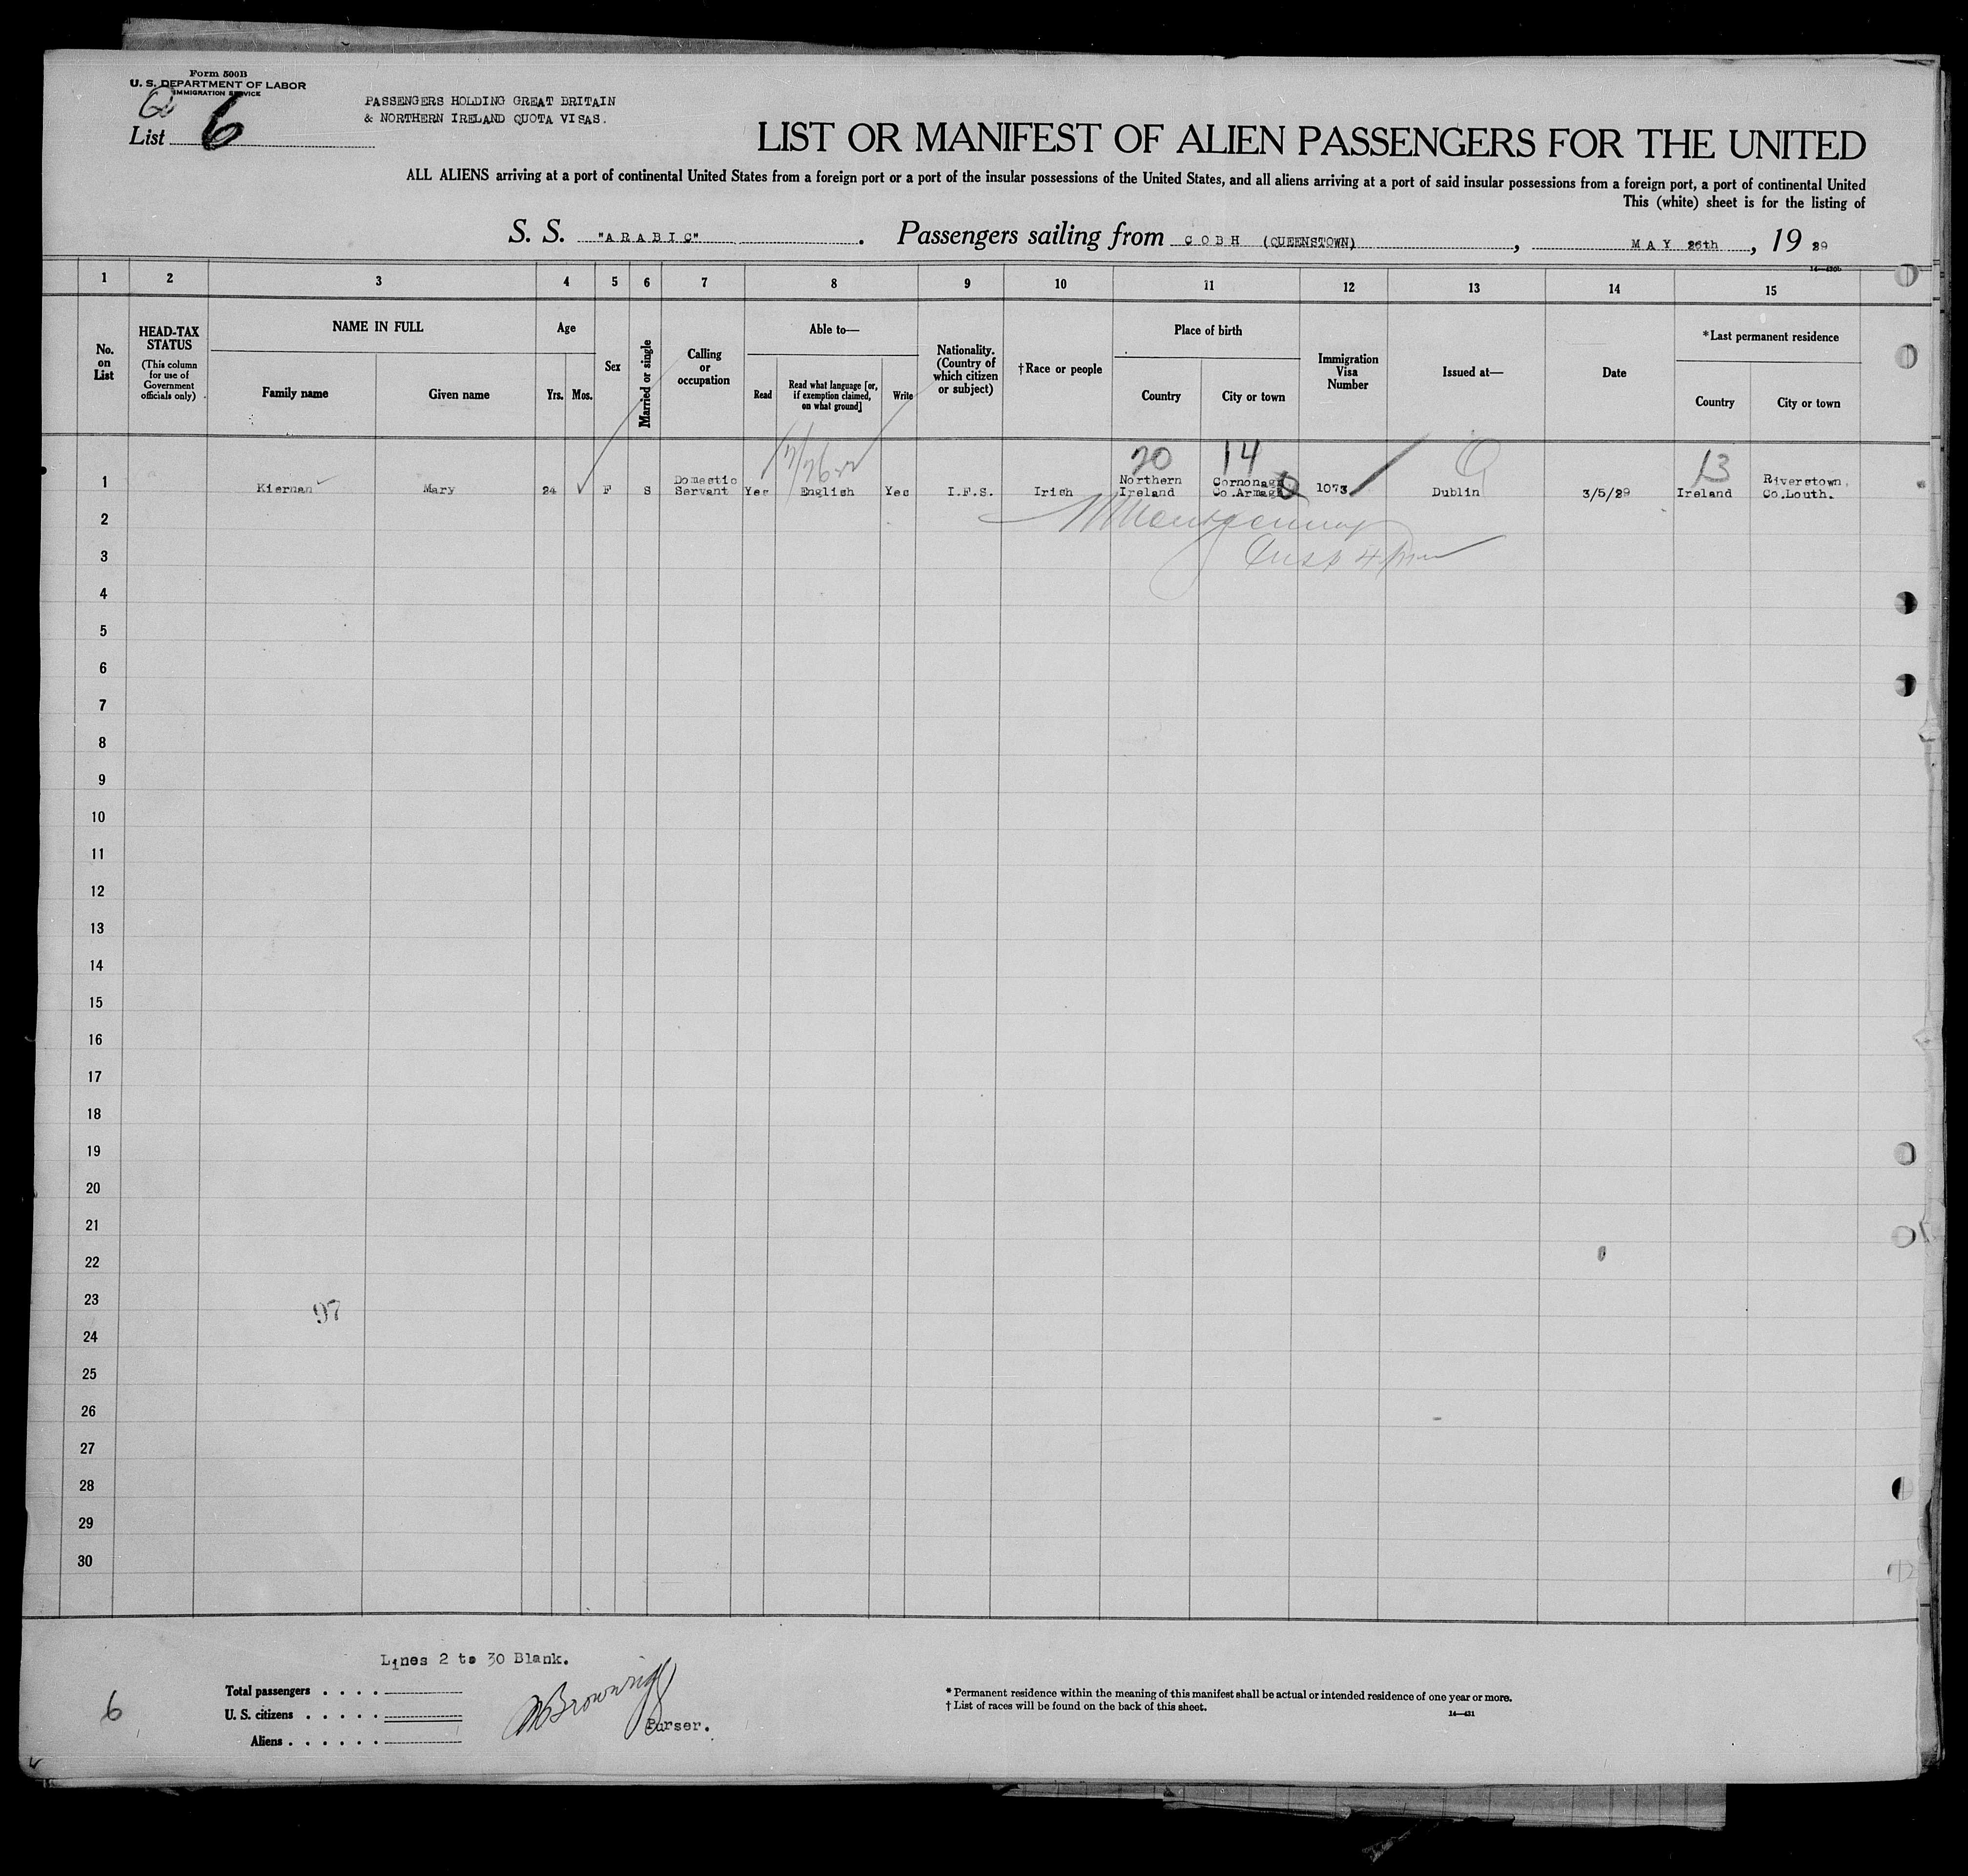 Form 500B
U. S. DEPARTMENT OF LABOR
IMMIGRATION SERVICE
List 6
PASSENGERS HOLDING GREAT BRITAIN
& NORTHERN IRELAND QUOTA VISAS.
LIST OR MANIFEST OF ALIEN PASSENGERS FOR THE UNITED
ALL ALIENS arriving at a port of continental United States from a foreign port or a port of the insular possessions of the United States, and all aliens arriving at a port of said insular possessions from a foreign port, a port of continental United
This (white) sheet is for the listing of
S. S. "ARABIC". Passengers sailing from COBH (QUEENSTOWN), MAY 26th, 19 29
1 2 3 4 5 6 7 8 9 10 11 12 13 14 15
No. on List
HEAD-TAX STATUS
(This column for use of Government officials only)
NAME IN FULL
Family name
Given name
Age
Yrs.
Mos.
Sex
Married or single
Calling or occupation
Able to—
Read
Read what language [or, if exemption claimed, on what ground]
Write
Nationality. (Country of which citizen or subject)
†Race or people
Place of birth
Country
City or town
Immigration Visa Number
Issued at—
Date
*Last permanent residence
Country
City or town
20 14 13
1 Kiernan Mary 24 F S Domestic Servant Yes English Yes I.F.S. Irish Northern Ireland Co.Armagh 1073 Dublin 3/5/29 Ireland Riverstown, Co.Louth.
2
Montgomery
3
Insp
4
5
6
7
8
9
10
11
12
13
14
15
16
17
18
19
20
21
22
23
97
24
25
26
27
28
29
30
Lines 2 to 30 Blank.
6
Total passengers . . . .
U. S. citizens . . . . .
Aliens . . . . . .
Browning
Purser.
* Permanent residence within the meaning of this manifest shall be actual or intended residence of one year or more.
† List of races will be found on the back of this sheet.
14—431